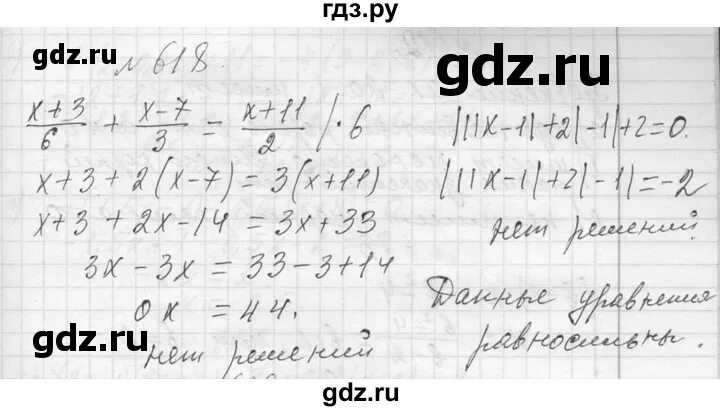 гдз.ру
gdz.ru
gdz.ru
№ 618.
(x+3)/6 + (x-7)/3 = (x+11)/2 /·6
x+3+2(x-7)=3(x+11)
x+3+2x-14=3x+33
3x-3x=33-3+14
0x =44.
нет решений
|||x-1|+2|-1|+2=0.
|||x-1|+2|-1|=-2
нет решений.
Данные уравнения
равносильны.
gdz.ru
gdz.ru
gdz.ru
gdz.ru
gdz.ru